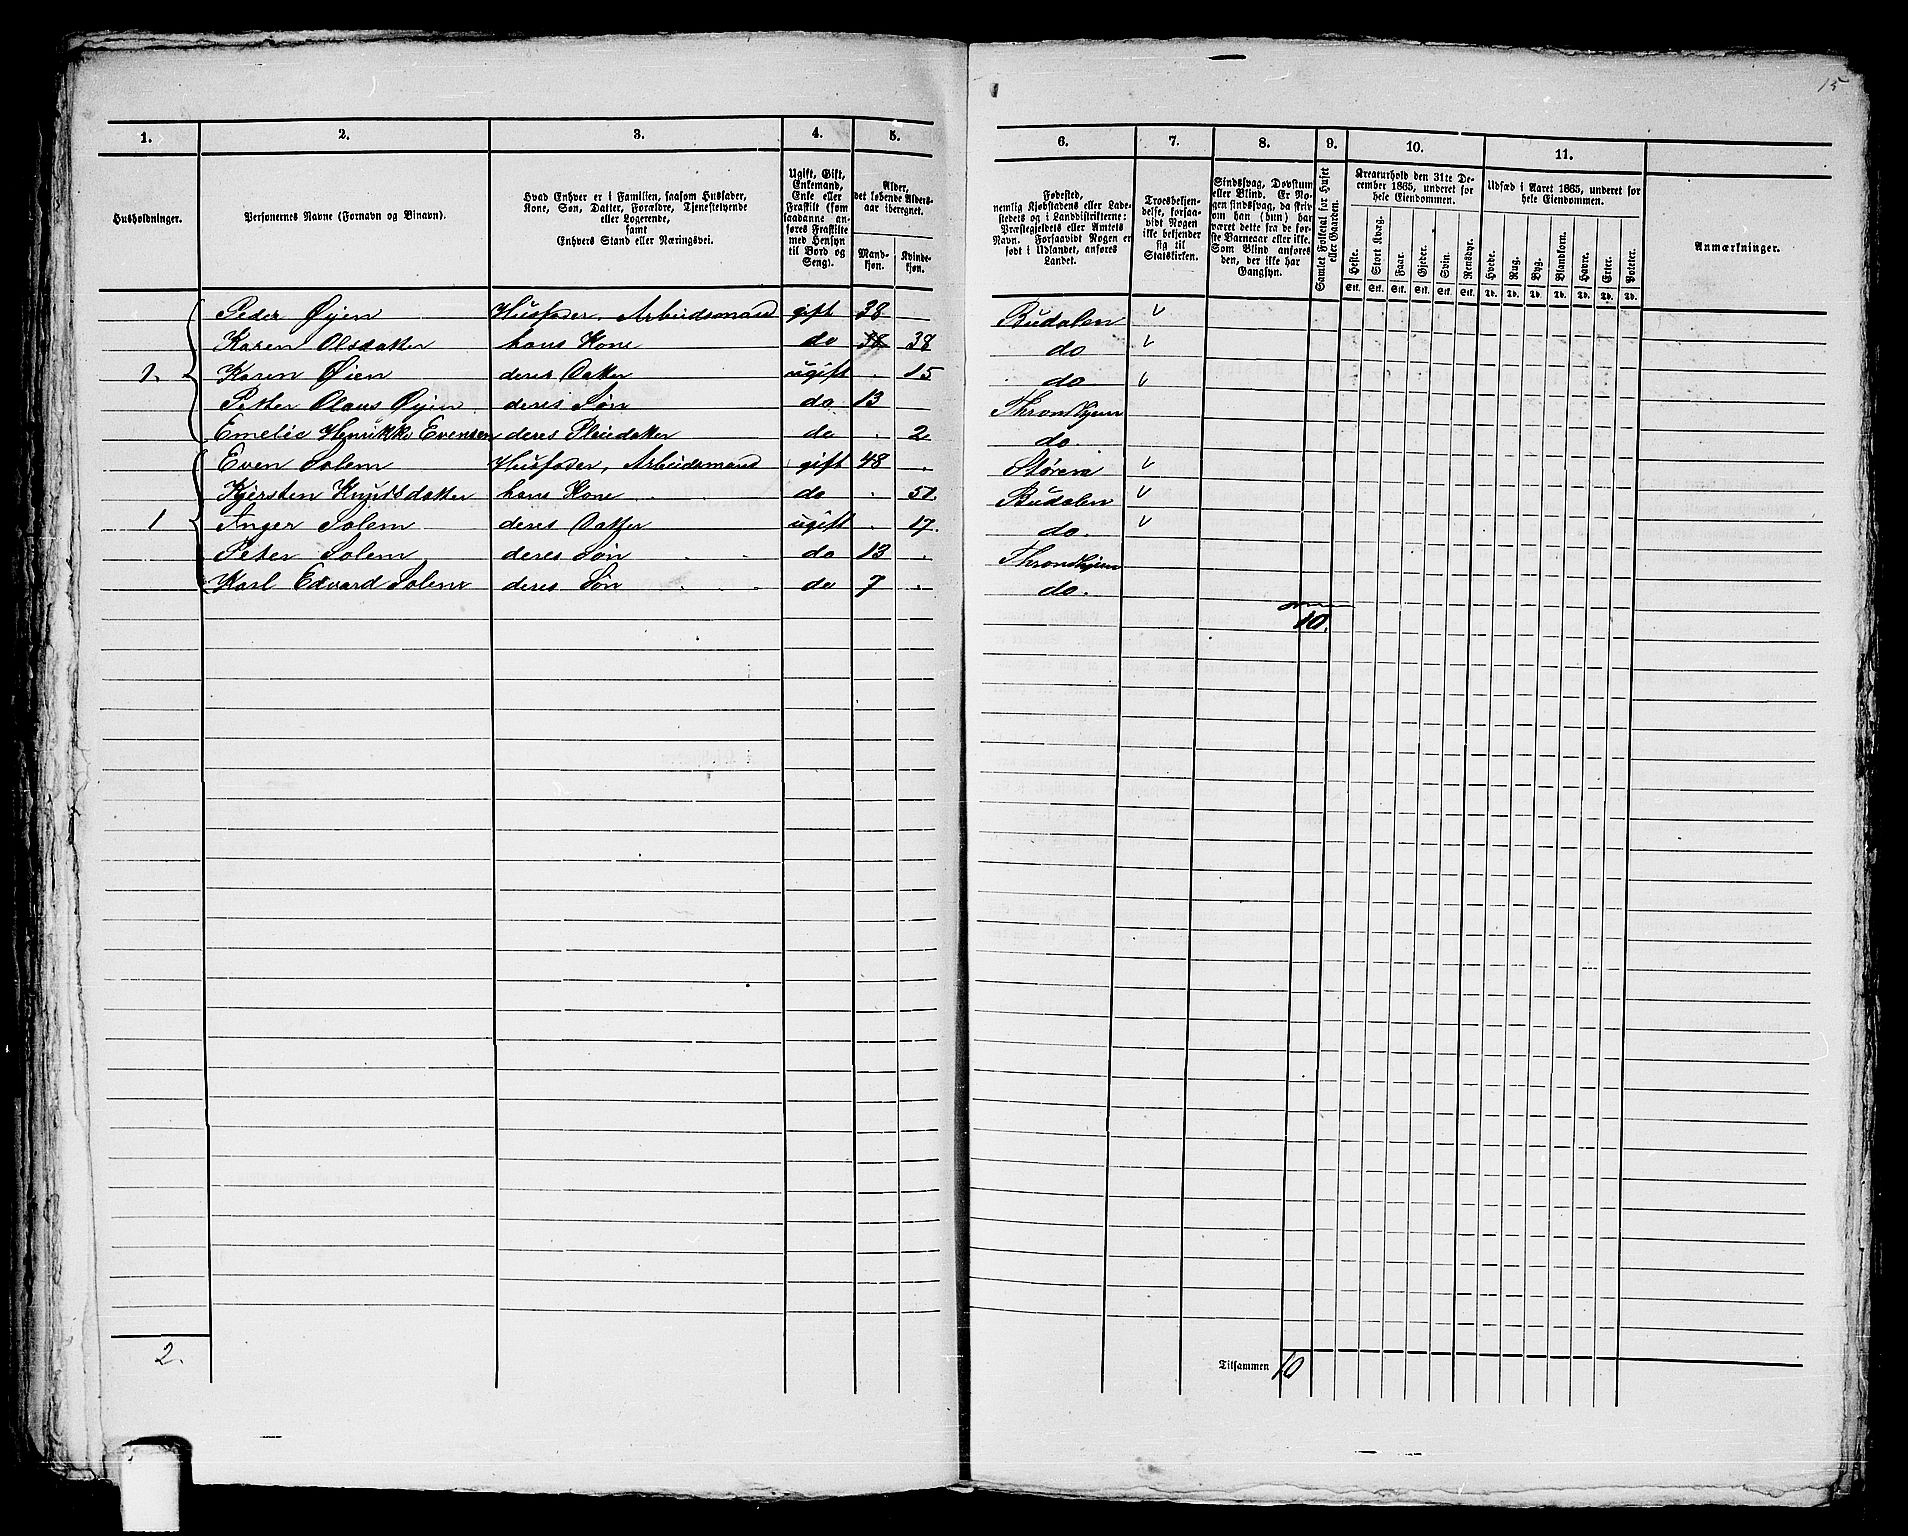 15
1. 2. 3. 4. 5. 6. 7. 8. 9. 10. 11.
Husholdninger.
Personernes Navne (Fornavn og Binavn).
Hvad Enhver er i Familien, saasom Husfader,
Kone, Søn, Datter, Forældre, Tjenestetyende
eller Logerende,
samt
Enhvers Stand eller Næringsvei.
Ugift, Gift,
Enkemand,
Enke eller
Fraskilt (som
saadanne an-
føres Fraskilte
med Hensyn
til Bord og
Seng).
Alder,
det løbende Alders-
aar iberegnet.
Mand-
kjøn.
Kvinde-
kjøn.
Fødested,
nemlig Kjøbstadens eller Lade-
stedets og i Landdistrikterne:
Præstegjeldets eller Amtets
Navn. Forsaavidt Nogen er
født i Udlandet, anføres
Landet.
Troesbekjen-
delse, forsaa-
vidt Nogen
ikke bekjender
sig til
Statskirken.
Sindssvag, Døvstum
eller Blind. Er No-
gen sindssvag, da skriv
om han (hun) har
været dette fra de før-
ste Barneaar eller ikke.
Som Blind anføres
den, der ikke har
Gangsyn.
Samlet Folketal for Huset
eller Gaarden.
Kreaturhold den 31te De-
cember 1865, underet for
hele Eiendommen.
Heste. Stort Kvæg. Faar. Gjeder. Svin. Rensdyr.
Stk. Stk. Stk. Stk. Stk. Stk.
Udsæd i Aaret 1865, underet for
hele Eiendommen.
Hvede. Rug. Byg. Blandkorn. Havre. Erter. Poteter.
Td. Td. Td. Td. Td. Td. Td.
Anmærkninger.
Peder Øjen Husfader, Arbeidsmand gift 38 Budalen
Karen Olsdatter hans Kone do 38 38 do
1. Karen Øien deres Datter ugift . 15 do
Petter Olaus Øjen deres Søn do 13 Throndhjem
Emelie Henrikke Evensen deres Pleiedatter do . 2 do.
Even Solem Husfader, Arbeidsmand gift 48 . Støren
Kjersten Knudsdatter hans Kone do . 51. Budalen
1 Inger Solem deres Datter ugift . 17. do.
Peter Solem deres Søn do 13 . Throndhjem
Karl Edvard Solem deres Søn do 7 . do.
10.
2.
Tilsammen 10